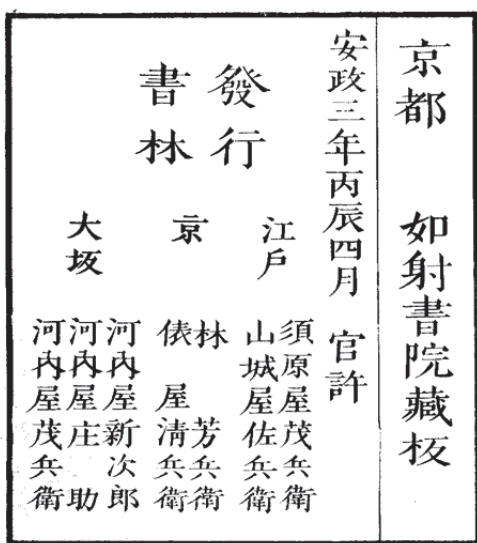 京都　如射書院藏板
安政三年丙辰四月　官許
發行
書林
江戶
須原屋茂兵衛
山城屋佐兵衛
京
林　芳兵衛
俵屋清兵衛
大坂
河內屋新次郎
河內屋庄助
河內屋茂兵衛